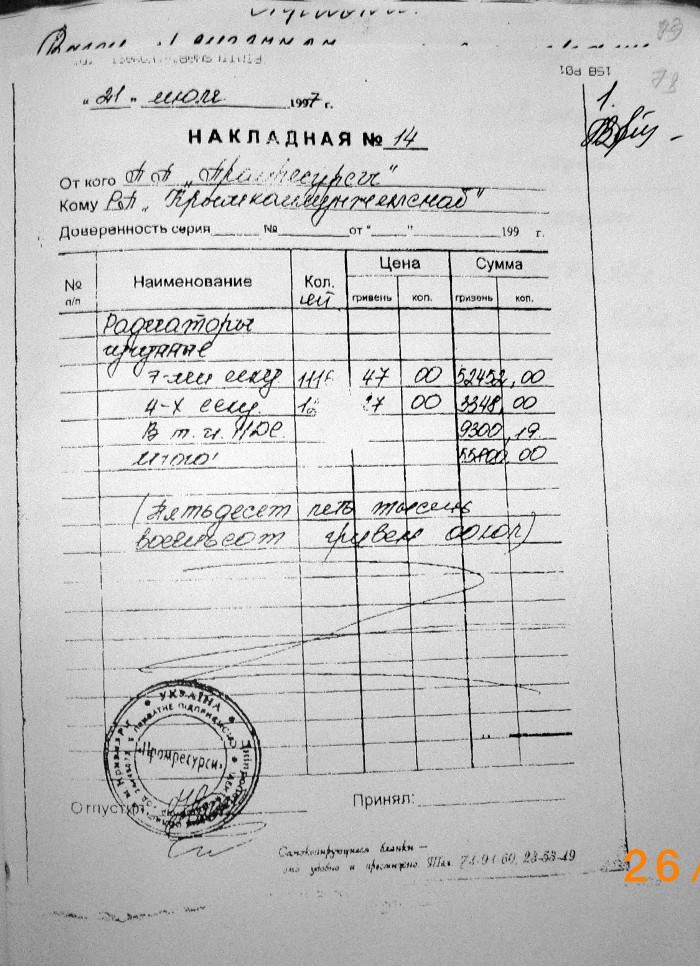 73
78
158 P01
1.
"21" июля 1997 г.
НАКЛАДНАЯ № 14
От кого П П „Промресурсы"
Кому РП „Крымкоммунжилснаб"
Доверенность серия № от " " 199 г.
№ п/п Наименование Кол. шт. Цена Сумма
гривень коп. гривень коп.
Радиаторы
чугунные
7-ми секц 1116 47 00 52452,00
4-х секц. 27 00 3348,00
В т. ч. НДС. 9300,19
Итого: 55800,00
(Пятьдесят пять тысяч
восемьсот гривен 00 коп)
УКРАЇНА
ПРИВАТНЕ ПІДПРИЄМСТВО
«Промресурси»
Отпустил Принял:
Самокопирующиеся бланки —
это удобно и престижно Тел 71-91-60, 23-53-49
26/